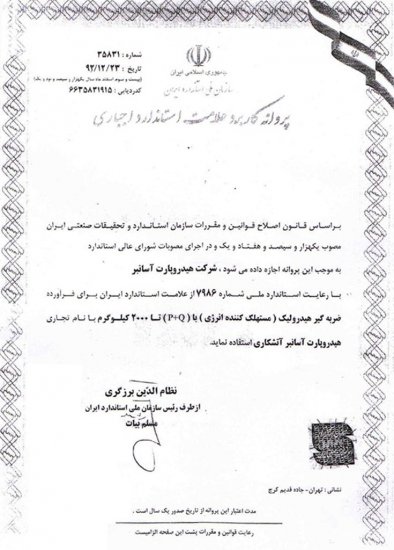 شماره : ۳۵۸۳۱
تاریخ : ۹۲/۱۲/۲۳
(بیست و سوم اسفند ماه سال یکهزار و سیصد و نود و یک)
کدردیابی : ۶۶۳۵۸۳۱۹۱۵
جمهوری اسلامی ایران
سازمان ملی استاندارد ایران
پروانه کاربرد علامت استاندارد اجباری
براساس قانون اصلاح قوانین و مقررات سازمان استاندارد و تحقیقات صنعتی ایران
مصوب یکهزار و سیصد و هفتاد و یک و در اجرای مصوبات شورای عالی استاندارد
به موجب این پروانه اجازه داده می شود ، شرکت هیدروپارت آسانبر
با رعایت استاندارد ملی شماره ۷۹۸۶ از علامت استاندارد ایران برای فرآورده
ضربه گیر هیدرولیک ( مستهلک کننده انرژی ) با (P+Q) تا ۲۰۰۰ کیلوگرم با نام تجاری
هیدروپارت آسانبر آتشکاری استفاده نماید.
نظام الدین برزگری
ازطرف رئیس سازمان ملی استاندارد ایران
مسلم بیات
نشانی : تهران - جاده قدیم کرج
مدت اعتبار این پروانه از تاریخ صدور یک سال است .
رعایت قوانین و مقررات پشت این صفحه الزامیست